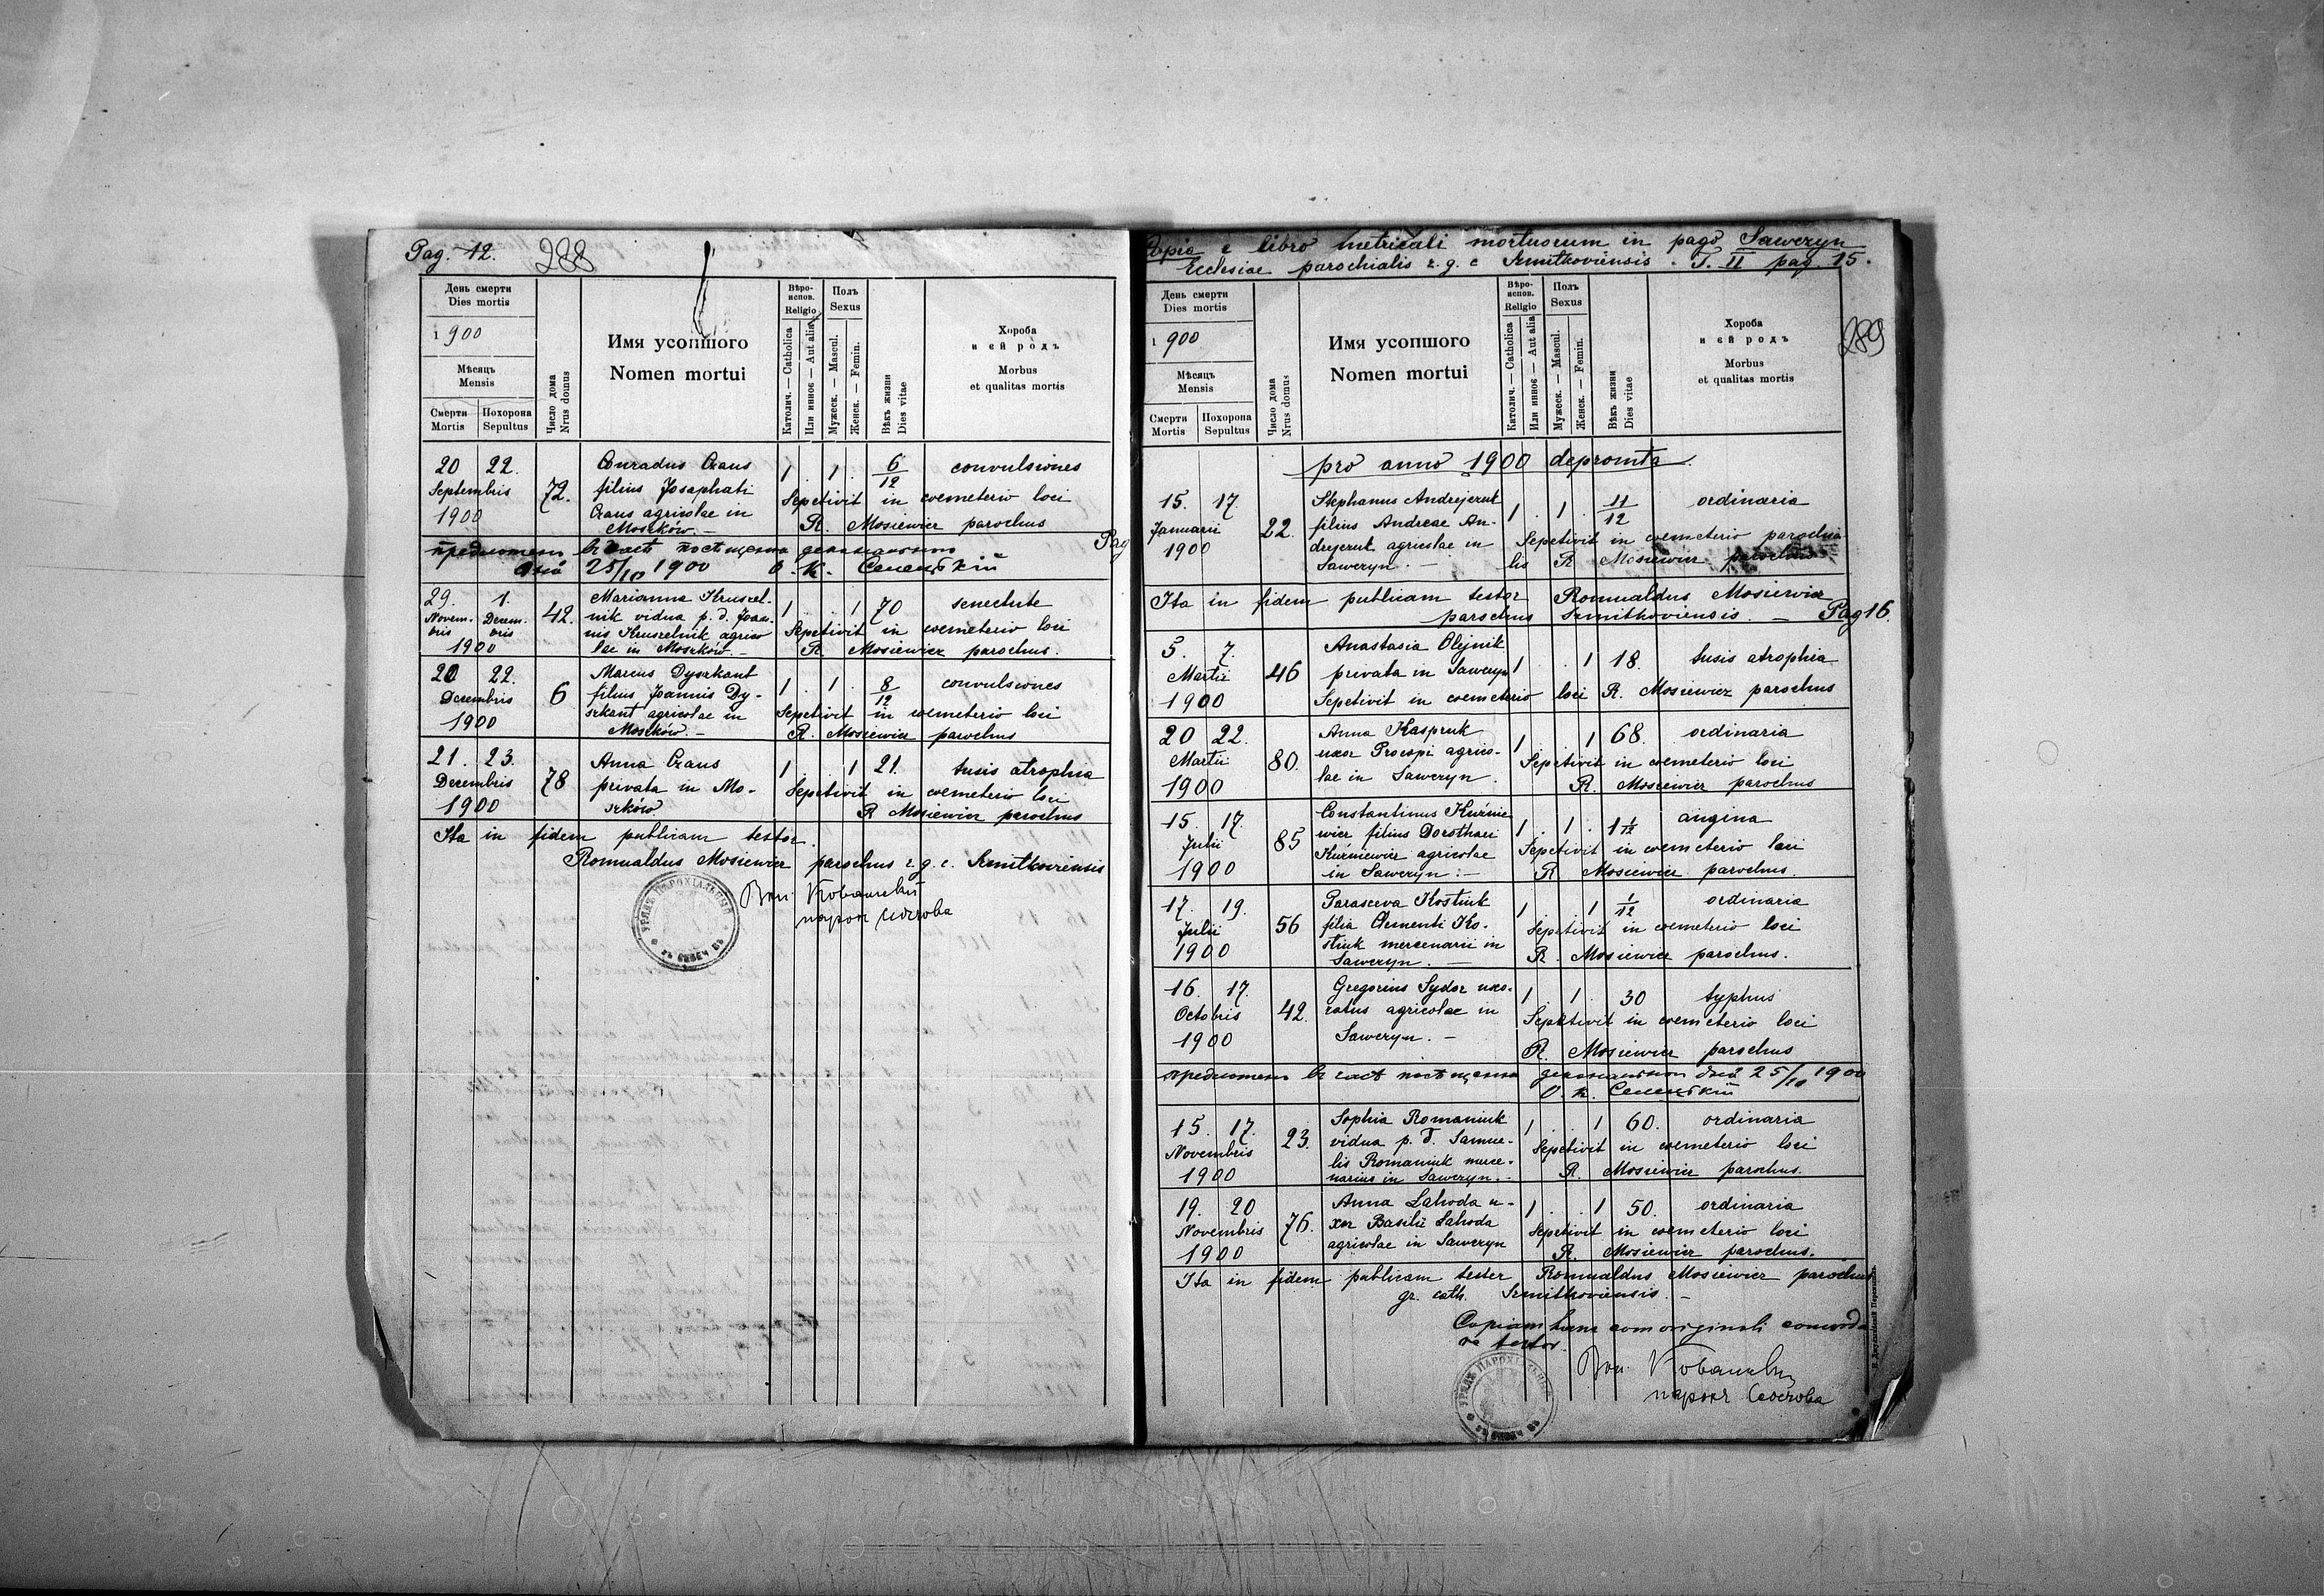 Pag. 12.
288
День смерти
Dies mortis
1900
Мѣсяць
Mensis
Смерти
Mortis
Похорона
Sepultus
Число дома
Nrus domus
Имя усопшого
Nomen mortui
Вѣро-
испов.
Religio
Католич. — Catholica
Или инноє — Aut alia
Полъ
Sexus
Мужеск. — Mascul.
Женск. — Femin.
Вѣкъ жизни
Dies vitae
Хороба
и єй родъ
Morbus
et qualitas mortis
20 22. Conradus Czaus 1 . 1 . 6/12 convulsiones
Septembris 72. filius Josaphati Sepetivit in coemeterio loci
1900 Czaus agricolae in R. Mosiewicz parochus
Moszków. —
предложен въ часѣ посѣщенія деканального
дня 25/10 1900 О. К. Селецкій
29. 1. Marianna Kruszel- 1 . . 1 70 senectute
Novem- Decem- 42. nik vidua p. d. Joan- Sepetivit in coemeterio loci
bris bris nis Kruszelnik agrico
1900 lae in Moszków. — R. Mosiewicz parochus.
20 22. Marcus Dyszkant 1 . 1 . 8/12 convulsiones
Decembris 6 filius Joannis Dy- Sepetivit in coemeterio loci
1900 szkant agricolae in R. Mosiewicz parochus
Moszków. —
21. 23. Anna Czaus 1 . . 1 21. tusis atrophia
Decembris 78 privata in Mo- Sepetivit in coemeterio loci
1900 szków. R Mosiewicz parochus
Ita in fidem publicam testor.
Romualdus Mosiewicz parochus r. g. c. Szmitkoviensis
парох
УРЯДЪ ПАРОХІАЛЬНЫЙ
Pag
Copia e libro metricali mortuorum in pago Saweryn
Ecclesiae parochialis r. g. c Szmitkoviensis. T. II pag. 15.
289
День смерти
Dies mortis
1900
Мѣсяць
Mensis
Смерти
Mortis
Похорона
Sepultus
Число дома
Nrus domus
Имя усопшого
Nomen mortui
Вѣро-
испов.
Religio
Католич. — Catholica
Или инноє — Aut alia
Полъ
Sexus
Мужеск. — Mascul.
Женск. — Femin.
Вѣкъ жизни
Dies vitae
Хороба
и єй родъ
Morbus
et qualitas mortis
pro anno 1900 depromta.
15. 17. Stephanus Andrejczuk 1 . 1 . 11/12 ordinaria
Januarii 22. filius Andreae An- Sepetivit in coemeterio parochia
1900 drejczuk agricolae in lis R Mosiewicz parochus
Saweryn. —
Ita in fidem publicam testor Romualdus Mosiewicz
parochus Szmitkoviensis. — Pag 16.
5. 7. Anastasia Olejnik
Martii 46 privata in Saweryn 1 . . 1 18. tusis atrophia
1900 Sepetivit in coemeterio loci R. Mosiewicz parochus
20 22. Anna Kaspruk 1 . . 1 68. ordinaria
Martii 80. uxor Procopi agrico- Sepetivit in coemeterio loci
1900 lae in Saweryn. R. Mosiewicz parochus
15. 17. Constantinus Kuźnie 1 . 1 . 1 1/12 angina
Julii 85 wicz filius Dorothaei Sepetivit in coemeterio loci
1900 Kuźniewicz agricolae R Mosiewicz parochus.
in Saweryn. —
17. 19. Parasceva Kostiuk 1 . . 1 1/12 ordinaria
Julii 56 filia Clementi Ko- Sepetivit in coemeterio loci
1900 stiuk mercenarii in R. Mosiewicz parochus.
Saweryn. —
16. 17. Gregorius Sydor uxo- 1 . 1 . 30 typhus
Octobris 42. ratus agricolae in Sepetivit in coemeterio loci
1900 Saweryn. — R. Mosiewicz parochus
предложен въ часѣ посѣщенія деканального дня 25/10 1900
О. К. Селецкій
15. 17. Sophia Romaniuk 1 . . 1 60. ordinaria
Novembris 23. vidua p. d. Samue- Sepetivit in coemeterio loci
1900 lis Romaniuk merce- R. Mosiewicz parochus.
narius in Saweryn. —
19. 20 Anna Lahoda u- 1 . . 1 50. ordinaria
Novembris 76. xor Basilii Lahoda Sepetivit in coemeterio loci
1900 agricolae in Saweryn R. Mosiewicz parochus.
Ita in fidem publicam tester Romualdus Mosiewicz parochus
gr. cath. Szmitkoviensis. —
Copiam hanc com originali concorda
re testor.
парох
УРЯДЪ ПАРОХІАЛЬНЫЙ